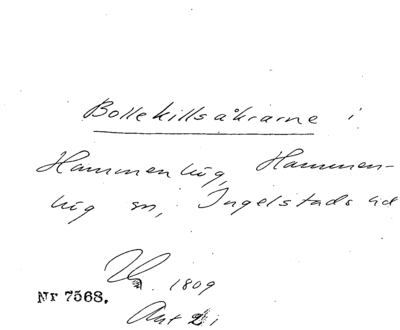 Bollekillsåkrarne i
Hammenhög, Hammen-
hög sn, Ingelstads hd
1809
Nr 7568.
Akt